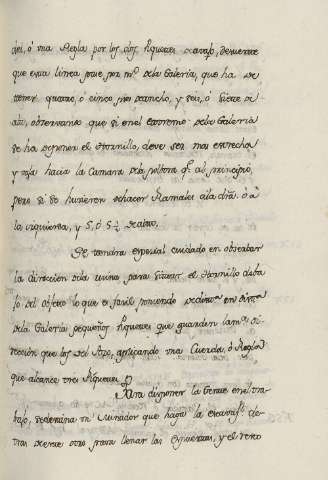 ó una Regla por los dhos Piquetes de suerte
que esta linea pase por mº dela Galeria, que ha de
tener quatro, ó cinco pies de ancho, y seis, ó siete de
alto, observando que si en el extremo dela Galeria
se ha de poner el Hornillo, deve ser mas estrecha
y vaja hacia la Camara dela polvora qe. al principio,
pero si se huvieren de hacer Ramales ala dra. ó á
la izquierda, 5, ó 5½ de alto.
Se tendra especial cuidado en observar
la direccion dela mina para situar el Hornillo deba
jo del objeto lo que es facil poniendo
dela Galeria pequeños Piquetes que guarden la mma di
reccion que los del Pozo, aplicando una Cuerda, ó Regla
que alcance tres Piquetes
Para disponer la Gente en el tra
bajo, se destina un Minador que haga la excavason de
tras de este otro para llenar las Espuertas, y el resto